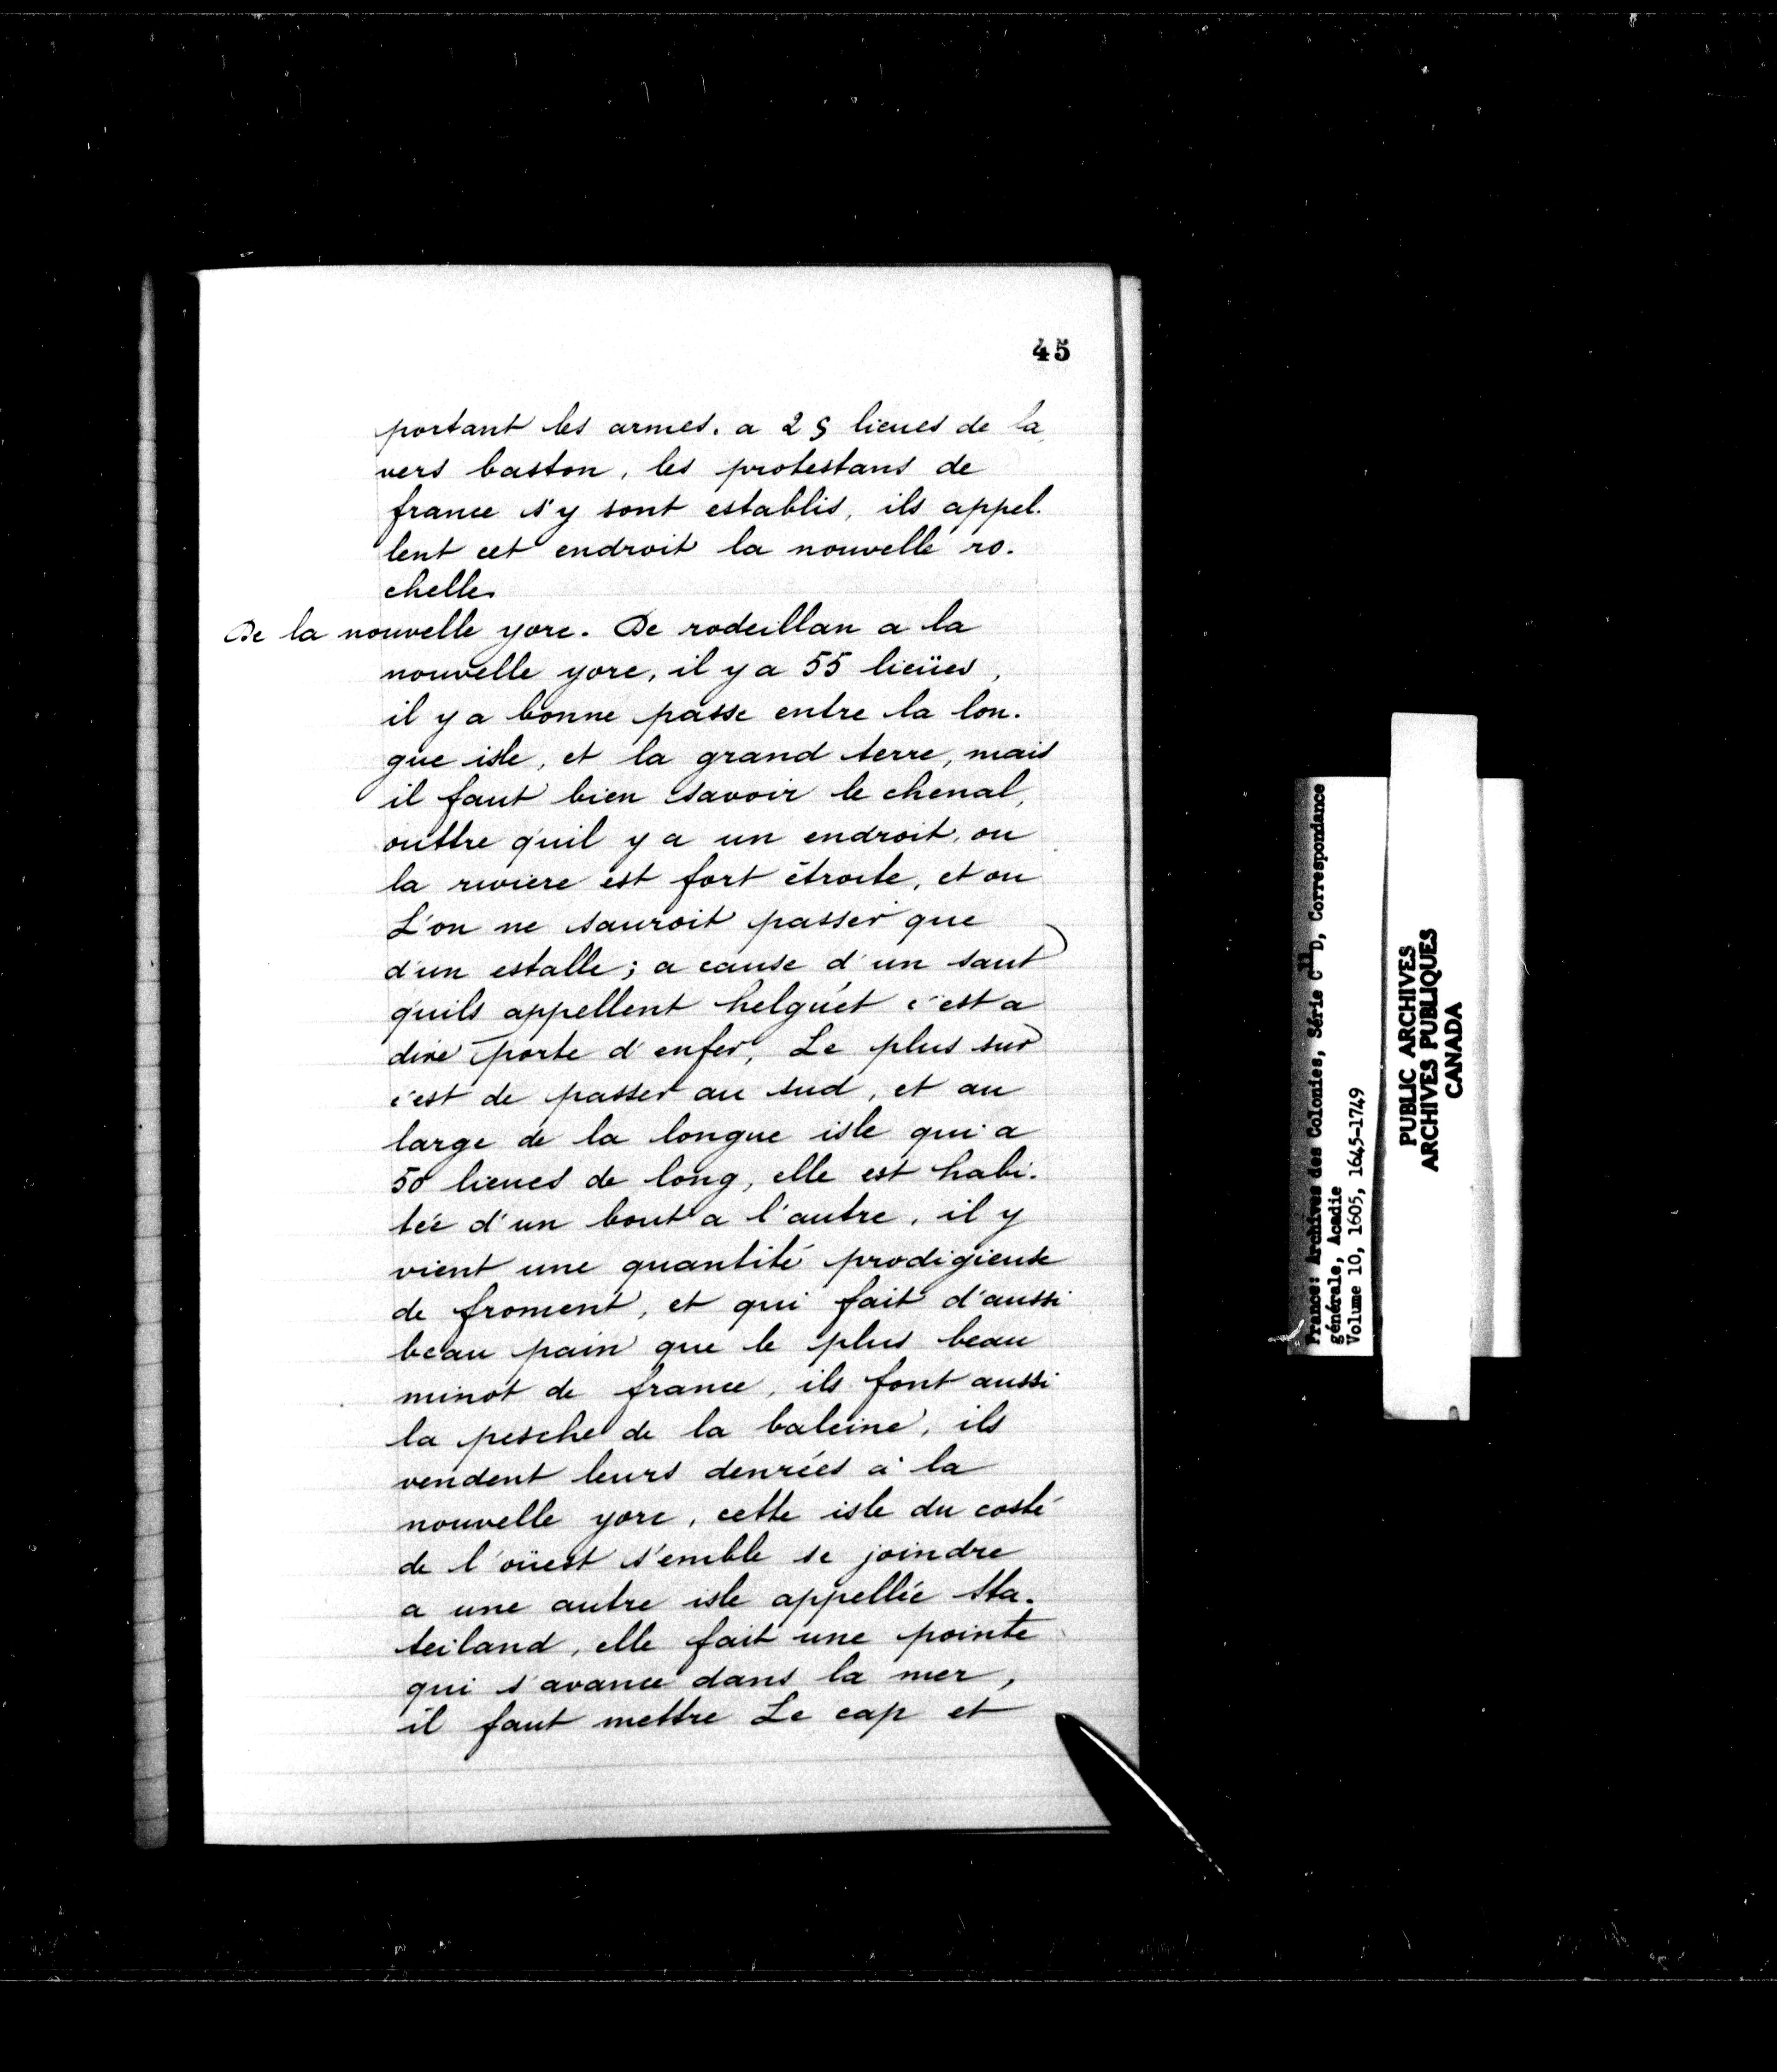 45
portant les armes. a 25 lieues de la
vers baston, les protestans de
france s'y sont establis, ils appel.
lent cet endroit la nouvelle ro.
chelle.
De la nouvelle yorc. De rodeillan a la
nouvelle yorc, il y a 55 lieües,
il y a bonne passe entre la lon.
gue isle, et la grand terre, mais
il faut bien savoir le chenal,
outtre quil y a un endroit, ou
la riviere est fort étroite, et ou
L'on ne sauroit passer que
d'un estalle; a cause d'un saut
quils appellent helguet c'est a
dire porte d'enfer, Le plus sur
c'est de passer au sud, et au
large de la longue isle qui a
50 lieues de long, elle est habi.
tée d'un bout a l'autre, il y
vient une quantité prodigieuse
de froment, et qui fait d'aussi
beau pain que le plus beau
minot de france, ils font aussi
la pesche de la baleine, ils
vendent leurs denrées à la
nouvelle yorc, cette isle du costé
de l'oüest s'emble se joindre
a une autre isle appellée sta.
teiland, elle fait une pointe
qui s'avance dans la mer,
il faut mettre Le cap et
France: Archives des Colonies, Série C11D, Correspondance
générale, Acadie
Volume 10, 1605, 1645-1749
PUBLIC ARCHIVES
ARCHIVES PUBLIQUES
CANADA